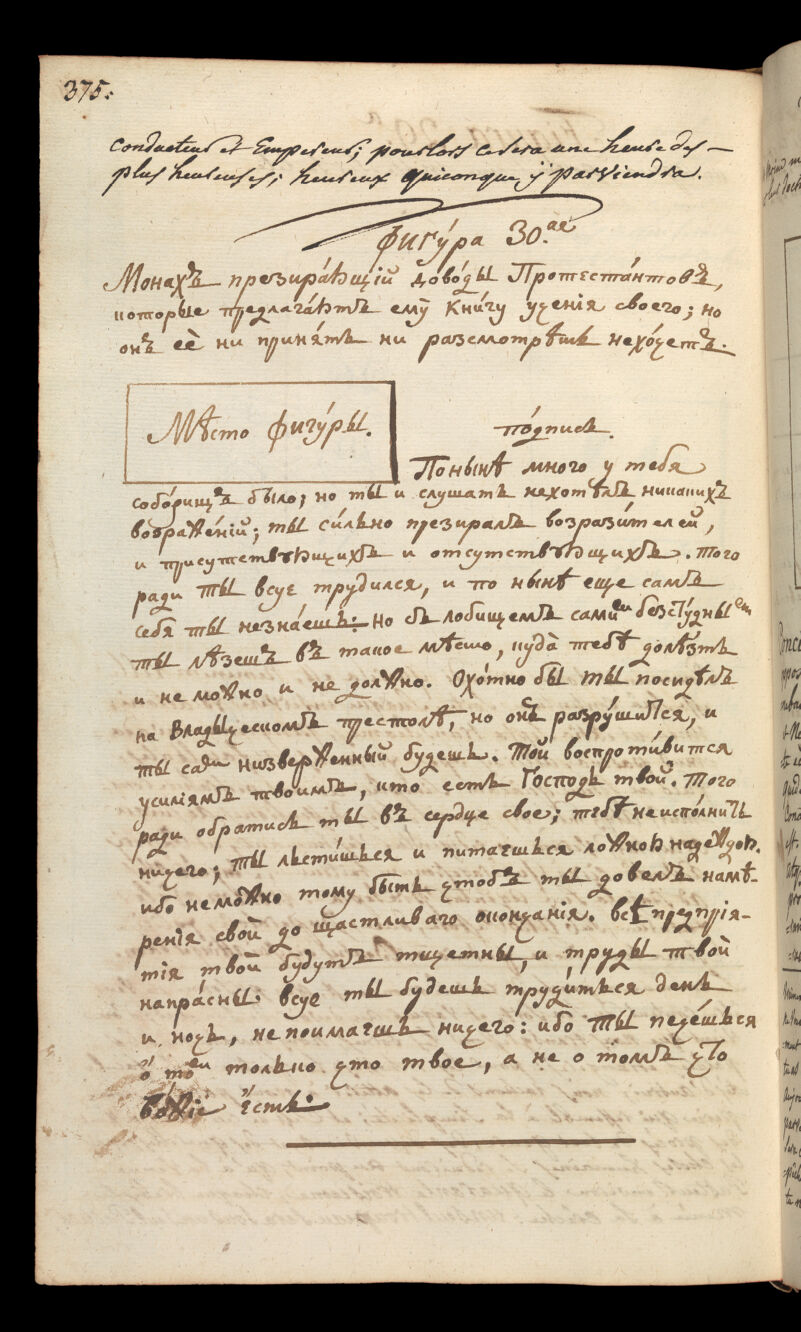 375:
conducteur et Empereur; pourlors ce sera une heure des-
plus heureuses; heureux quiconque ÿ parviendra.
Фигу́ра 30.ая
Монахъ презира́ющїй до́воды Протеста́нтовъ,
которые предлага́ютъ ему̀ Кни́гу ученїя своего; но
онъ еѐ ни приня́ть ни разсмотрѣть нехо́четъ.
Мѣсто фигу́ры.
по́дпись.
Понынѣ много у тебя
собо́рищъ было; но ты и слушать нехотѣлъ никакихъ
возраже́нїй; ты си́льно презиралъ возрази́телей,
и присутствѹющихъ и отсутствѹющихъ. того
ради ты всуе трудился, и по нынѣ еще самъ
себя ты незна́ешь: но съ лобищемъ самимъ безсту́днымъ
ты лѣзешъ въ такое мѣсто, куда̀ тебѣ долѣзть
и не можно и не должно. Охо́тно бы ты посидѣлъ
на Владыческомъ престолѣ, но онъ разру́шится, и
ты самъ низверженный будешь. Той воспроти́вится
усилїямъ твоимъ, кто есть Господь твой. Того
ради обратись ты въ сердце свое; тебѣ неиспо́лнить
ничего; ты льсти́шься и питаешься ложною надеждою.
ибо немо́жно тому быть чтобъ ты довелъ намѣ-
ренїя свои до щастливаго окончанїя. всѣ предпрїя-
тїя твои будутъ тщетны, и труды твои
напра́сны. всуе ты будешь труди́ться день
и ночь, непоимаешь ничего: ибо ты пече́шься
о томъ только что твое, а не о томъ что
бо́жїе е́сть.